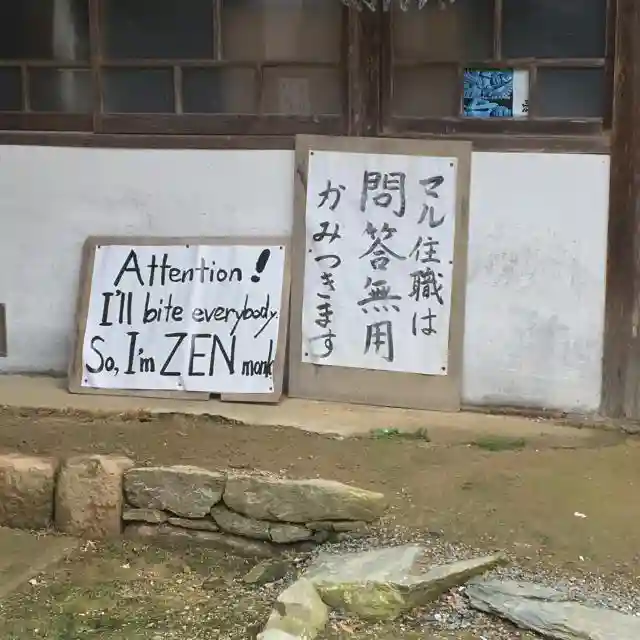 Attention!
I'll bite everybody.
So, I'm ZEN monk
マル住職は
問答無用
かみつきます